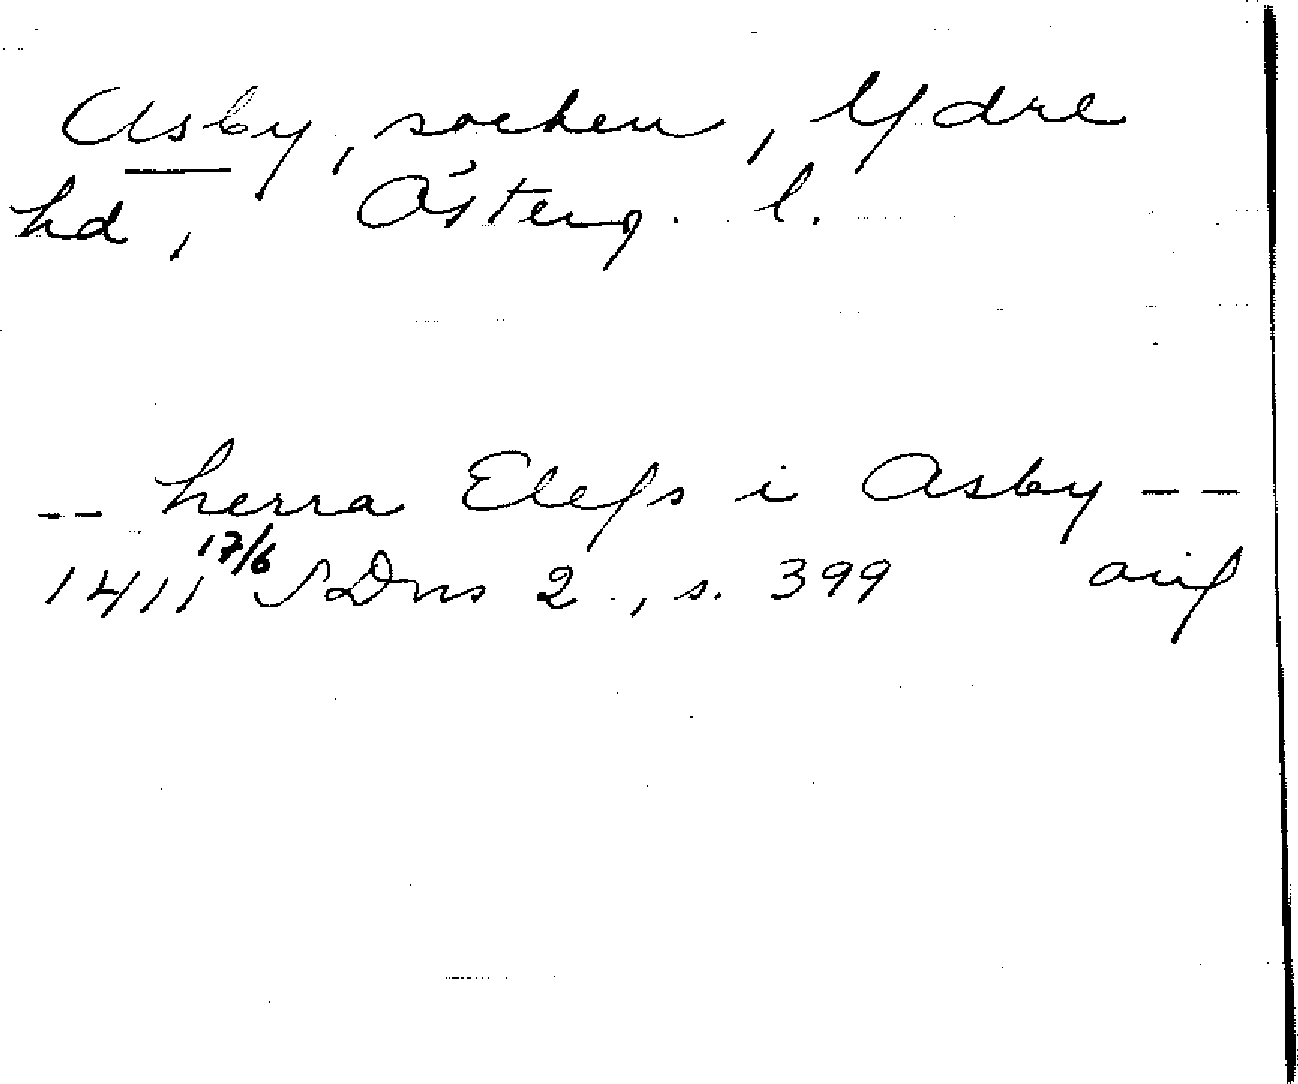 Asby, socken, Ydre
hd, Österg. l.
-- herra Elefs i Asby --
1411 17/6 SDns 2, s. 399 avf